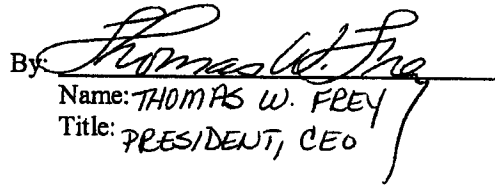 By: Thomas W. Frey
Name: THOMAS W. FREY
Title: PRESIDENT, CEO